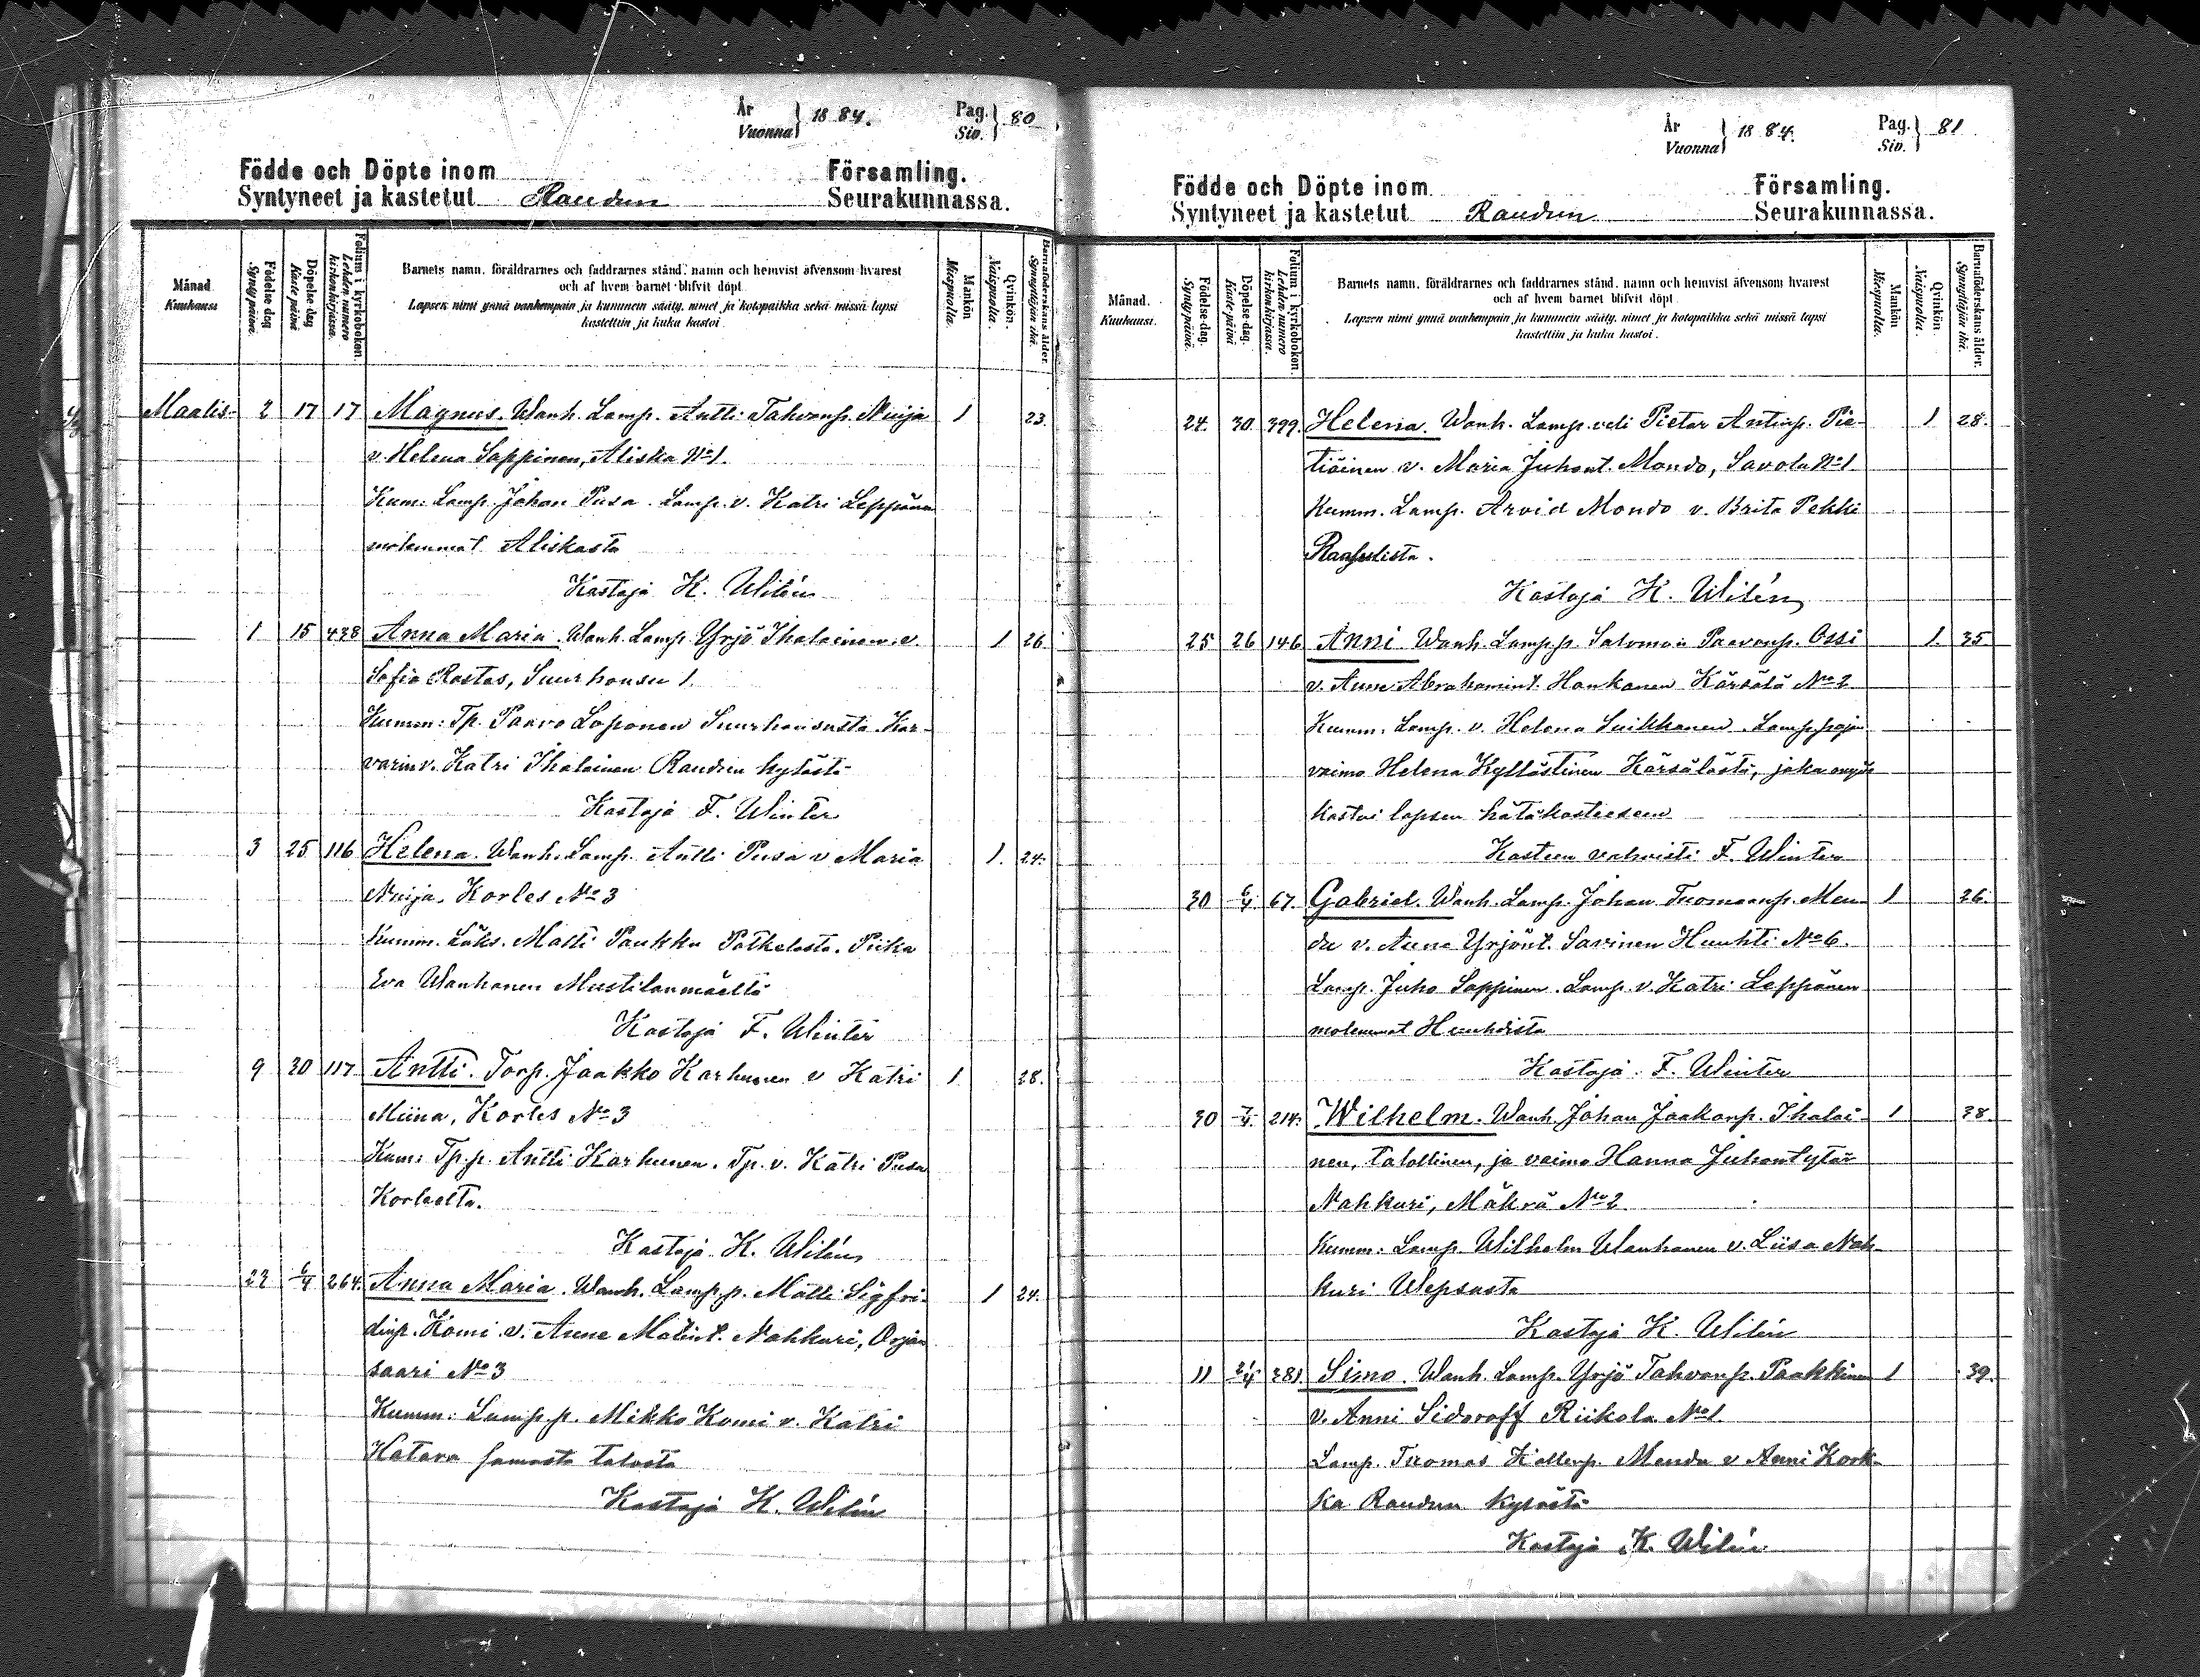 År
Vuonna 1884.
Pag.
Siv. 80
Födde och Döpte inom Församling.
Syntyneet ja kastetut Raudun Seurakunnassa.
Månad
Kuukausi
Födelse-dag
Synty-päivä.
Döpelse-dag
Kaste-päivä
Folium i kyrkoboken.
Lehden numero kirkonkirjassa.
Barnets namn, föräldrarnes och faddrarnes stånd, namn och hemvist äfvensom hvarest
och af hvem barnet blifvit döpt
Lapsen nimi ynnä vanhempain ja kummein sääty, nimet ja kotopaikka sekä missä lapsi
kastettiin ja kuka kastoi.
Mankön
Miespuolta.
Qvinkön.
Naispuolta.
Barnaföderskans ålder.
Synnyttäjän ikä.
Maalis- 2 17 17 Magnus. Wanh. Lamp. Antti Tahvonp. Nuija 1 23.
v. Helena Sappinen, Aliska No 1.
Kum: Lamp. Johan Pusa. Lamp. v. Katri Leppänen
molemmat Aliskasta
Kastoja K. Wilén
1 15 428 Anna Maria. Wanh. Lamp. Yrjö Ihalainen v. 1 26
Sofia Rastas, Suurhousu 1.
Kumm: Tp. Paavo Loponen Suurhousústa. Kar-
varin v. Katri Ihalainen Raudun kylästä
Kastoja F. Winter
3 25 116 Helena. Wanh. Lamp. Antti Pusa v Maria 1. 24.
Nuija, Korles No 3
Kumm. Läks. Matti Paukku Potkelasta. Piika
Eva Wanhanen Mustilanmäeltä
Kastoja F. Winter
9 30 117 Antti. Torp. Jaakko Karhunen v Katri 1 28.
Miina, Korles No 3
Kum: Tp.p. Antti Karhunen. Tp. v. Katri Pusa
Korleelta.
Kastoja K. Wilén
22 6/4 264. Anna Maria. Wanh. Lamp.p. Matti Sigfri- 1 24.
dinp. Komi v. Anna Matint. Nahkuri, Orjan
saari No 3
Kumm: Lamp.p. Mikko Komi v. Katri
Hatara samasta talosta
Kastoja K. Wilén
År
Vuonna 1884.
Pag.
Siv. 81
Födde och Döpte inom Församling.
Syntyneet ja kastetut Raudun Seurakunnassa.
Månad.
Kuukausi.
Födelse-dag.
Synty-päivä.
Döpelse-dag.
Kaste-päivä
Folium i kyrkoboken.
Lehden numero kirkonkirjassa.
Barnets namn, föräldrarnes och faddrarnes stånd, namn och hemvist äfvensom hvarest
och af hvem barnet blifvit döpt.
Lapsen nimi ynnä vanhempain ja kummein sääty, nimet ja kotopaikka sekä missä lapsi
kastettiin ja kuka kastoi.
Mankön
Miespuolta.
Qvinkön
Naispuolta.
Barnaföderskans ålder.
Synnyttäjän ikä.
24. 30 399. Helena. Wanh. Lamp. veli Pietar Antinp. Pie- 1 28.
tiäinen v. Maria Juhont. Mondo, Savola No 1.
Kumm. Lamp. Arvid Mondo v. Brita Pekki
Raasulista.
Kastoja K. Wilén
25 26 146 Anni Wanh. Lamp.p. Salomon Paavonp. Ossi 1. 35
v. Anna Abrahamint. Hankanen Kärsälä No 2
Kumm. Lamp. v. Helena Suikkanen. Lamp.pojan
vaimo Helena Kyllästinen Kärsälästä, joka myös
kastoi lapsen hätäkasteeseen
Kasteen vahvisti F. Winter
30 6/4 67. Gabriel. Wanh. Lamp. Johan Tuomaanp. Men- 1 26.
du v. Anna Yrjönt. Savinen Huuhti No 6.
Lamp. Juho Sappinen. Lamp. v. Katri Leppänen
molemmat Huuhdista
Kastoja F. Winter
30 7/4 214. Wilhelm. Wanh Johan Jaakonp. Ihalai- 1 38.
nen, talollinen, ja vaimo Hanna Juhontytär
Nahkuri, Mäkrä No 2
Kumm: Lamp. Wilhelm Wanhanen v. Liisa Nah-
kuri Wepsasta
Kastoja K. Wilén
11 21/4 381. Simo. Wanh. Lamp. Yrjö Tahvonp. Paakkinen 1 39.
v. Anni Sidoroff Riikola No 1.
Lamp. Tuomas Kallenp. Mendu v Anni Kork-
ka Raudun kylästä
Kastoja K. Wilén